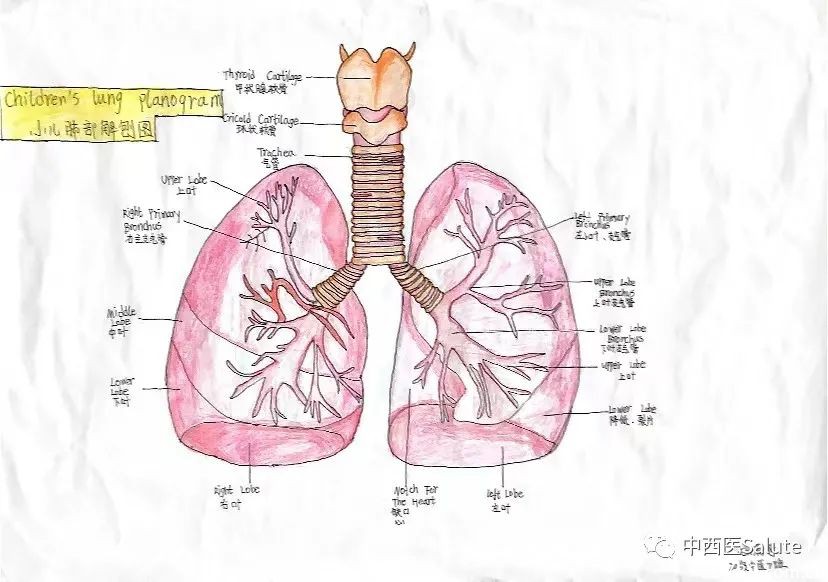 Children's lung planogram
小儿肺部解刨图
Thyroid Cartilage
甲状腺软骨
Cricold Cartilage
环状软骨
Trachea
气管
Upper Lobe
上叶
Right Primary
Bronchus
右主支气管
Middle
Lobe
中叶
Lower
Lobe
下叶
Left Primary
Bronchus
Upper Lobe
Bronchus
上叶支气管
Lower Lobe
Bronchus
下叶支气管
Upper Lobe
上叶
Lower Lobe
Right Lobe
右叶
Notch For
The Heart
缺口
心
Left Lobe
左叶
中西医Salute